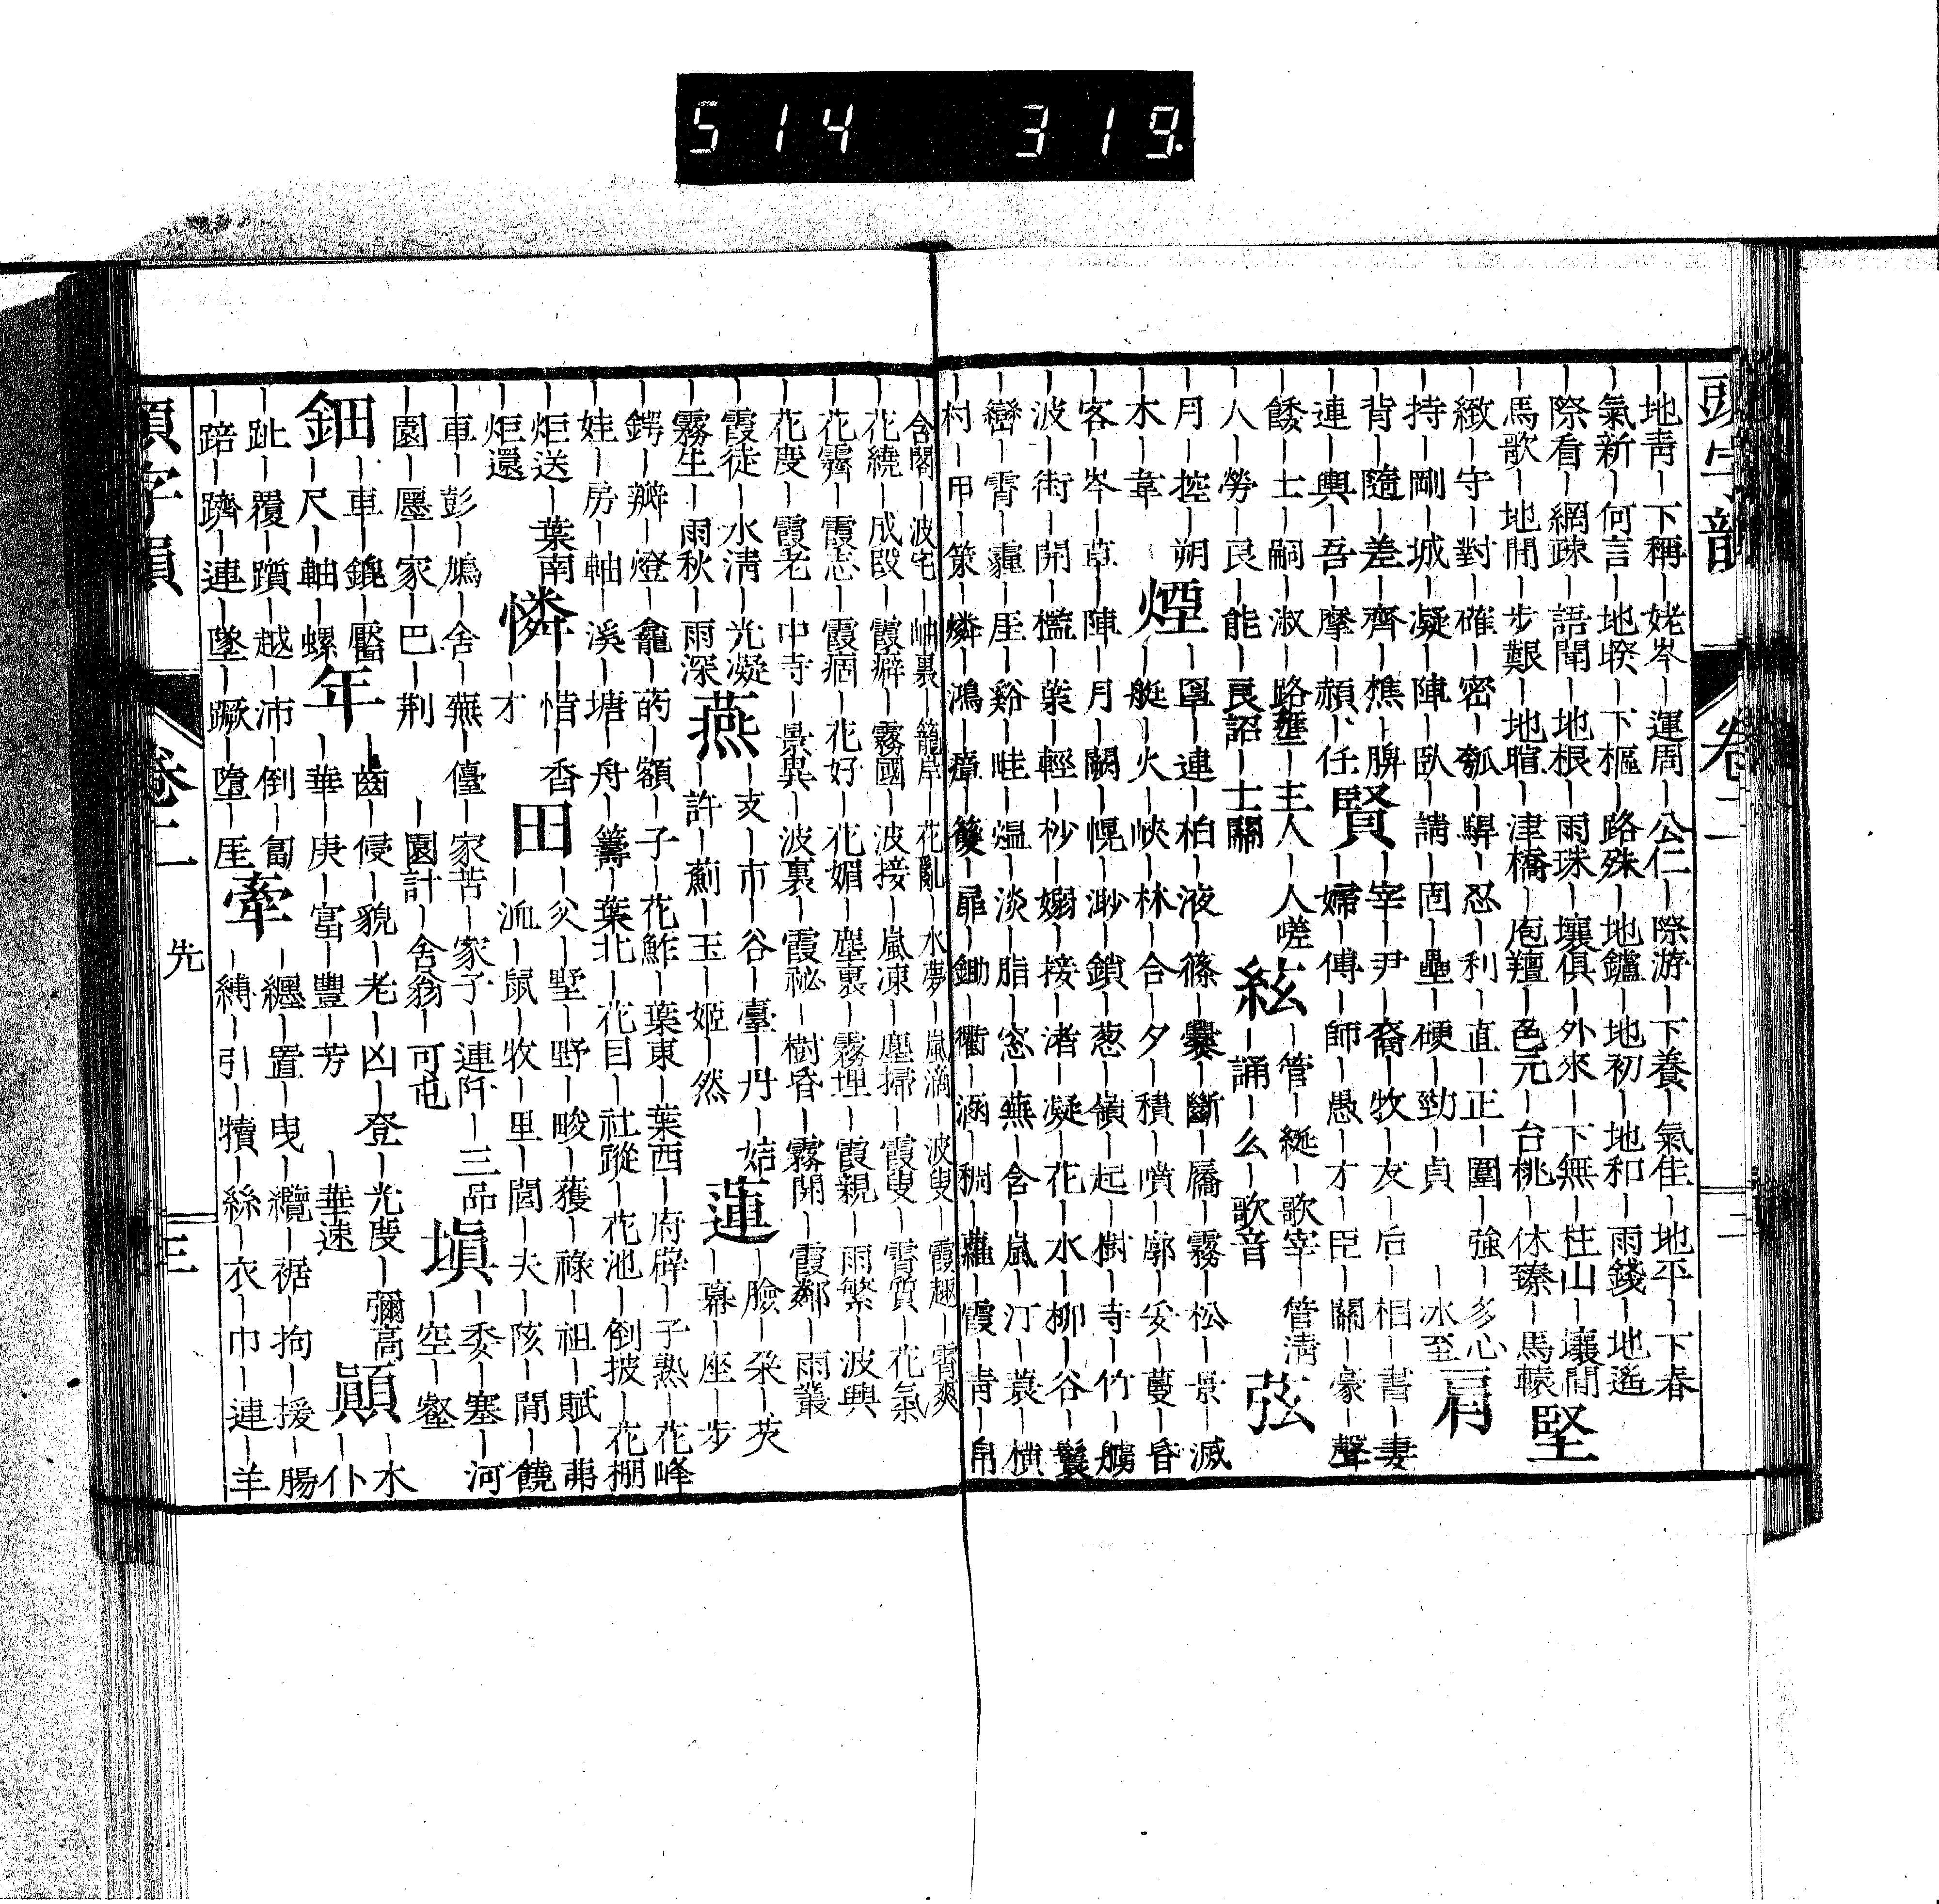 514 319.
頭字韻 卷二
｜地靑｜下稱｜姥岑｜運周｜公仁｜際游｜下養｜氣佳｜地平｜下春
｜氣新｜何言｜地暌｜下樞｜路殊｜地鑪｜地初｜地和｜雨錢｜地遙
｜際看｜網疎｜語聞｜地根｜雨珠｜壤俱｜外來｜下無｜柱山｜壤間
｜馬歌｜地閒｜步艱｜地暄｜津橋｜庖羶｜色元｜台桃｜休臻｜馬轅 堅
｜緻｜守｜對｜確｜密｜瓠｜騂｜忍｜利｜直｜正｜圍｜強｜多心
｜持｜剛｜城｜凝｜陣｜臥｜請｜固｜壘｜硬｜勁｜貞｜冰至 肩
｜背｜隨｜差｜齊｜樵｜脾 賢｜宰｜尹｜裔｜牧｜友｜后｜相｜書｜妻
｜連｜輿｜吾｜摩｜頳｜任｜婦｜傅｜師｜愚｜才｜臣｜關｜豪｜聲
｜餧｜士｜嗣｜淑｜路壅｜主人｜人嗟 絃｜管｜綖｜歌宰｜管淸
｜人｜勞｜良｜能｜良詔｜士關｜誦｜么｜歌音 弦
｜月｜控｜朔 煙｜罩｜連｜柏｜液｜篠｜爨｜斷｜屬｜霧｜松｜景｜滅
｜木｜葦｜艇｜火｜峽｜林｜合｜夕｜積｜噴｜廓｜妥｜蔓｜昏
｜客｜岑｜草｜陣｜月｜闕｜幌｜渺｜鎖｜葱｜嶺｜起｜樹｜寺｜竹｜觴
｜波｜街｜開｜檻｜葉｜輕｜杪｜嫋｜接｜渚｜凝｜花｜水｜柳｜谷｜鬟
｜巒｜霄｜霾｜厓｜谿｜畦｜煴｜淡｜脂｜窓｜蕪｜含｜嵐｜汀｜蓑｜橫
｜村｜甲｜策｜燐｜鴻｜瘴｜篗｜扉｜鋤｜衢｜涵｜稠｜蘿｜霞｜靑｜帛
｜含閣｜波宅｜岫裏｜籠岸｜花亂｜水夢｜嵐滴｜波叟｜霞趣｜霄爽
｜花繞｜成段｜霞癖｜霧國｜波接｜嵐凍｜塵掃｜霞叟｜霄質｜花氣
｜花霽｜霞志｜霞痼｜花好｜花媚｜塵裏｜霧埋｜霞親｜雨繁｜波興
｜花度｜霞老｜中寺｜景異｜波裏｜霞祕｜樹昏｜霧開｜霞鄰｜雨叢
｜霞徒｜水淸｜光凝 燕｜支｜市｜谷｜臺｜丹｜姞 蓮｜臉｜朶｜莢
｜霧生｜雨秋｜雨深｜許｜薊｜玉｜姬｜然｜幕｜座｜步
｜鍔｜瓣｜燈｜龕｜菂｜額｜子｜花鮓｜葉東｜葉西｜府辟｜子熟｜花峰
｜娃｜房｜軸｜溪｜塘｜舟｜籌｜葉北｜花目｜社蹤｜花池｜倒披｜花棚
｜炬送｜葉南 憐｜惜｜香 田｜父｜墅｜野｜畯｜獲｜祿｜祖｜賦｜弗
｜炬還｜才｜洫｜鼠｜牧｜里｜閭｜夫｜陔｜閒｜饒
｜車｜彭｜鴆｜舍｜蕪｜儓｜家苦｜家子｜連阡｜三品 塡｜委｜塞｜河
｜園｜廛｜家｜巴｜荆｜園計｜舍翁｜可屯｜空｜壑
鈿｜車｜鎞｜靨 年｜齒｜侵｜貌｜老｜凶｜登｜光度｜彌高 顚｜水
｜尺｜軸｜螺｜華｜庚｜富｜豐｜芳｜華速｜仆
｜趾｜覆｜躓｜越｜沛｜倒｜匐 牽｜纒｜置｜曳｜纜｜裾｜拘｜援｜腸
｜踣｜躋｜連｜墜｜蹶｜墮｜厓｜縛｜引｜犢｜絲｜衣｜巾｜連｜羊
頭字韻 卷二 先 三